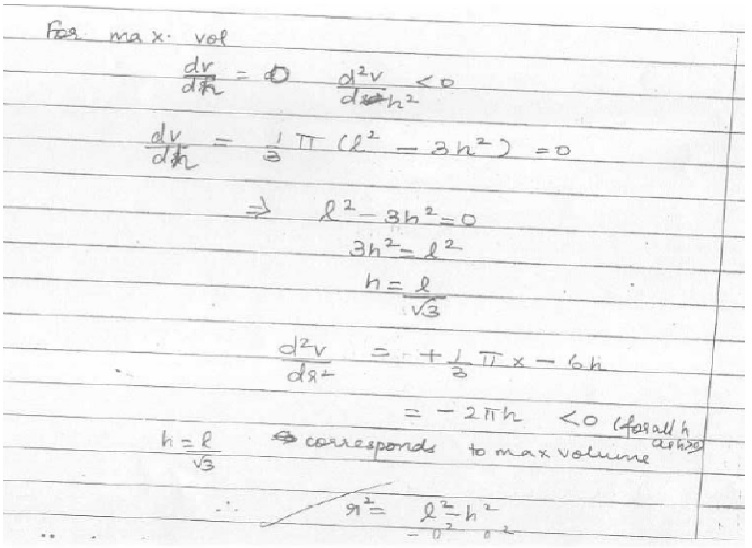 For max. vol
dv/dh = 0 d²v/dh² < 0
dv/dh = 1/3 π (l² − 3h²) = 0
⇒ l² − 3h² = 0
3h² = l²
h = l/√3
d²v/dr² = + 1/3 π × − 6h
= − 2πh < 0 (for all h as h>0)
h = l/√3 corresponds to max volume
∴ r² = l² − h²